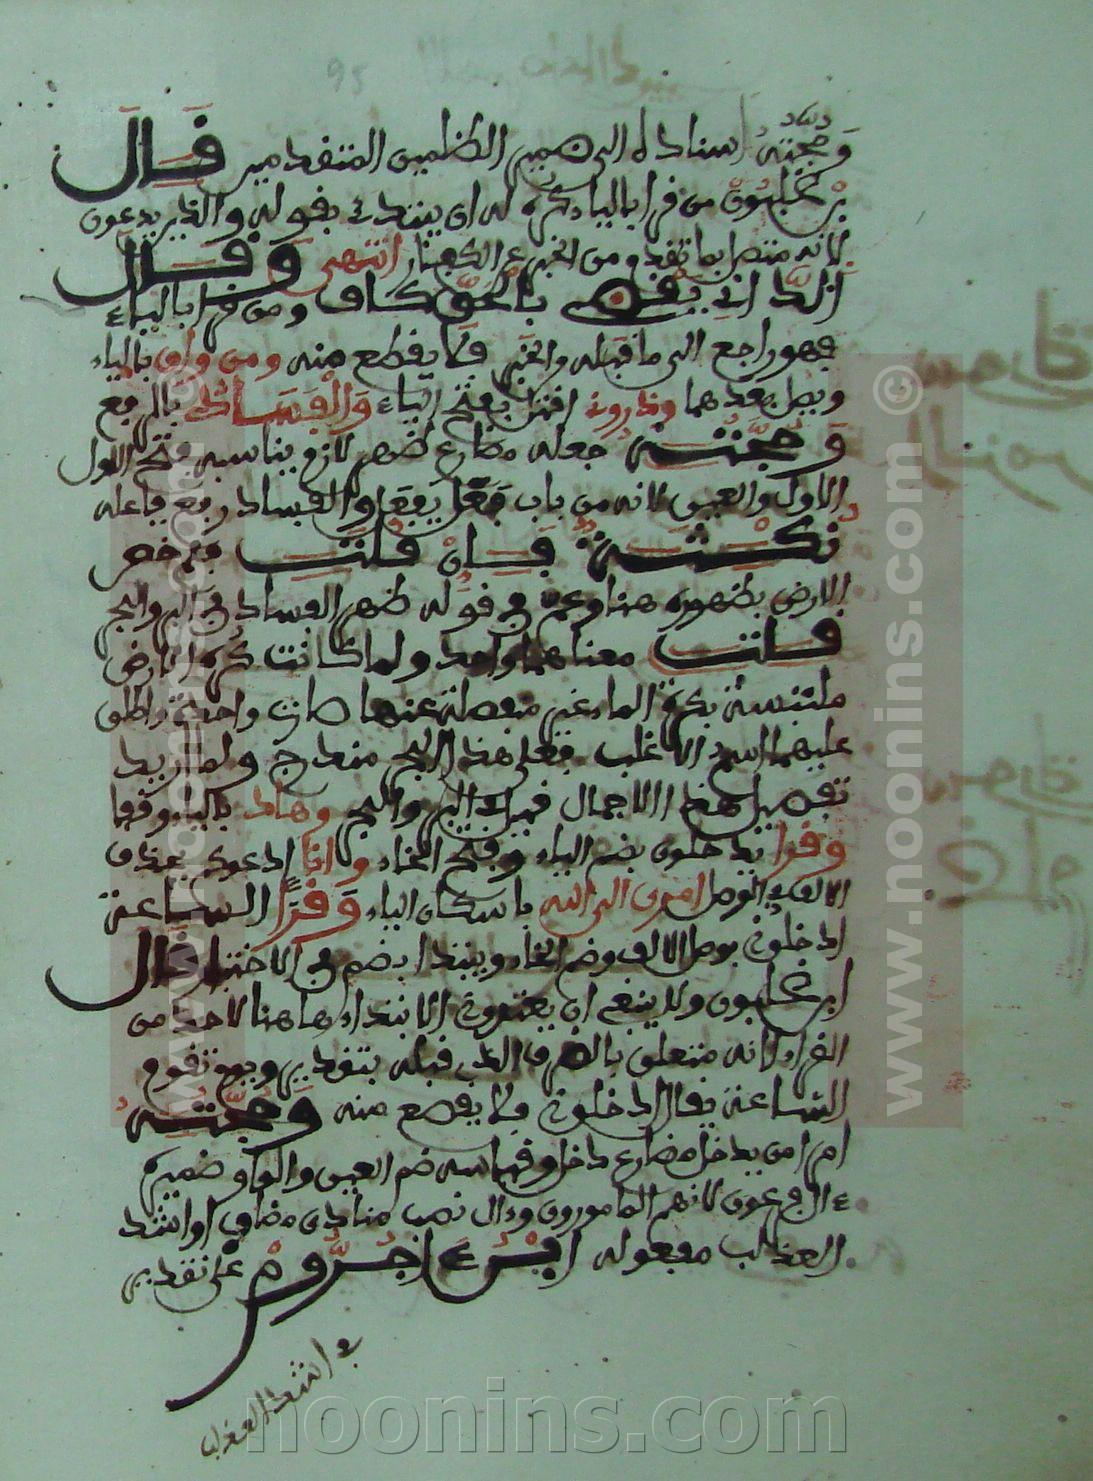 95
وحجته اسناده الى ضمير الظلمين المتقدمين قال
بن غلبون من قرا بالياء كره له ان يبتدئ بقوله والذين يدعون
لانه متصل بما تقدم من الخبر عن الكفار انتهى وقال
الداني يقص بالحق كاف ومن قرا بالياء
فهو راجع الى ما قبله والخبر فلا يقطع منه ومن واق بالياء
وبصل بعدهما وذرونى اقتل بفتح الياء والفساد بالرفع
وحجته جعله مضارع ظهر لازم يناسبه فتح
الاول والعين لانه من باب فعل يفعل والفساد رفع فاعله
نكتة فان قلت فلم خص
الارض بظهوره هنا وعم في قوله ظهر الفساد في البر والبحر
قلت معناهما واحد ولما كانت كرة الارض
ملتبسة بكرة الماء غير منفصلة عنها صارت واحدة واطلق
عليهما اسم الاغلب فعلى هذا البحر مندرج ولما اريد
تفصيل هذا الاجمال قيل في البر والبحر وهاد بالياء وقفا
وقرا يدخلون بضم الياء وفتح الخاء وانا ادعوكم بحذف
الالف في الوصل امرى الى الله باسكان الياء وقرا الساعة
ادخلوا بوصل الالف وضم الخاء ويبتدا بضم في الاختبار قال
ابن غلبون ولا ينبغي ان يعتمدوا الابتداء هاهنا لاحد من
القراء لانه متعلق بالظرف الذي قبله بتقدير ويوم تقوم
الساعة يقال ادخلوا فلا يقطع منه وحجته
امر من يدخل مضارع دخل وقياسه ضم العين والواو ضمير
ءال فرعون لانهم المامورون وءال نصب منادى مضاف او اشد
العذاب مفعوله ابن ءاجروم على تقدير
في اشد العذاب
© www.noonins.com
www.noonins.com
noonins.com